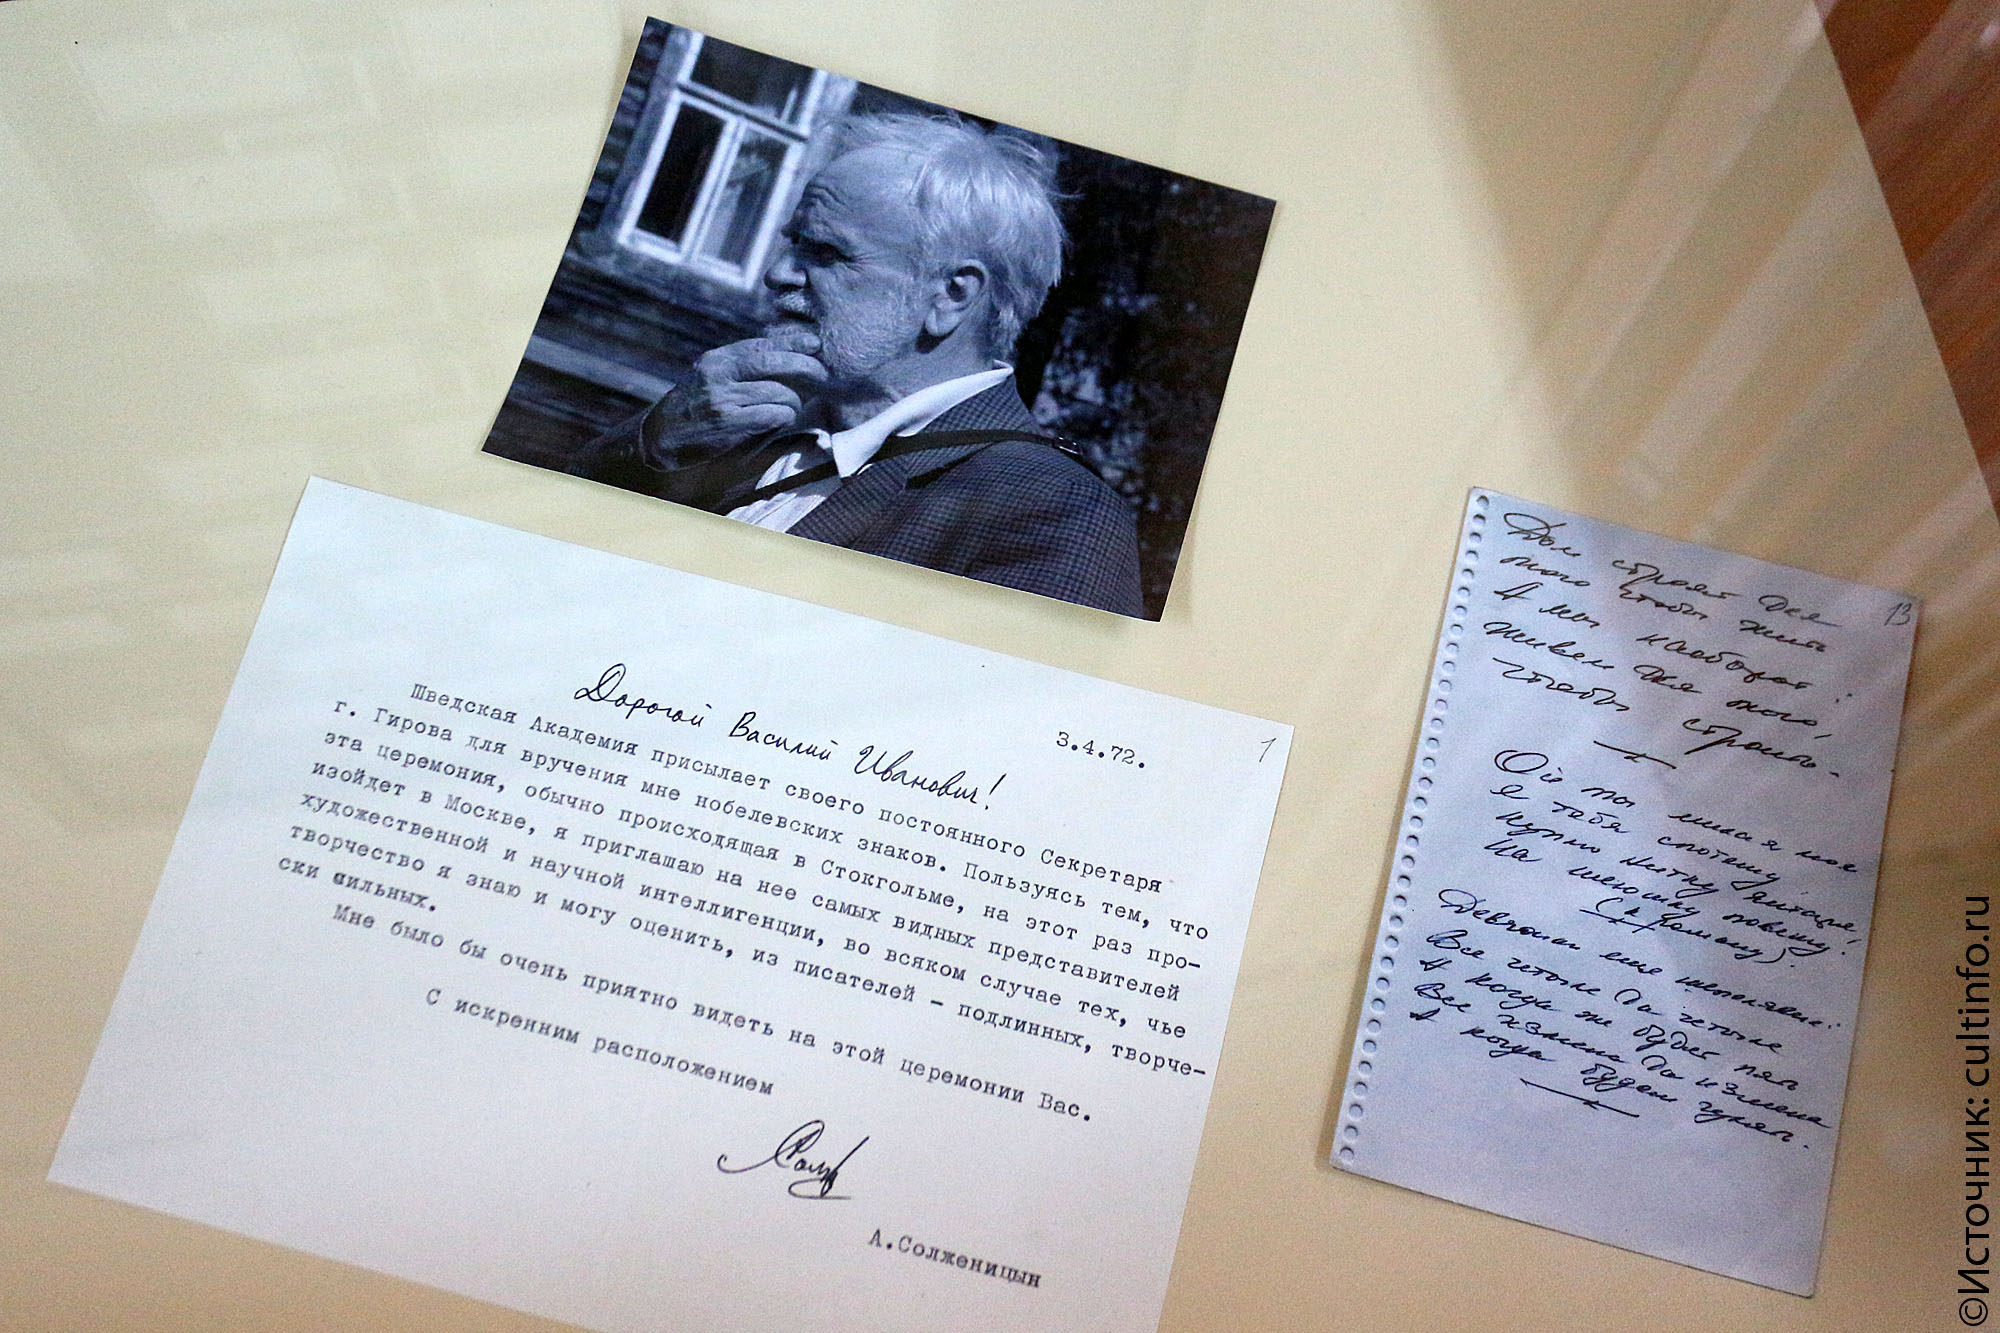 3.4.72.
1
Дорогой Василий Иванович!
Шведская Академия присылает своего постоянного Секретаря
г. Гирова для вручения мне нобелевских знаков. Пользуясь тем, что
эта церемония, обычно происходящая в Стокгольме, на этот раз про-
изойдет в Москве, я приглашаю на нее самых видных представителей
художественной и научной интеллигенции, во всяком случае тех, чье
творчество я знаю и могу оценить, из писателей – подлинных, творче-
ски сильных.
Мне было бы очень приятно видеть на этой церемонии Вас.
С искренним расположением
А.Солженицын
13
Дом строят для
того чтобы жить
А мы наоборот:
живем для того,
чтобы строить.
Ой ты милая моя
Я тебя спотешу
Куплю нитку янтаре,
На шеюшку повешу.
(к Роману).
Девчонки еще шепелявые:
Все четыре да четыре
А когда же будет пять
Все измена да измена
А когда будем гулять.
©Источник: cultinfo.ru